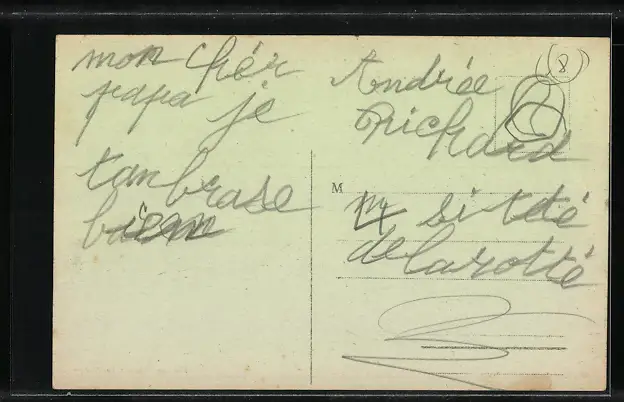 mon chér
papa je
tanbrase
bien
Andrée
Richard
M
14 si tété
delarotté
8